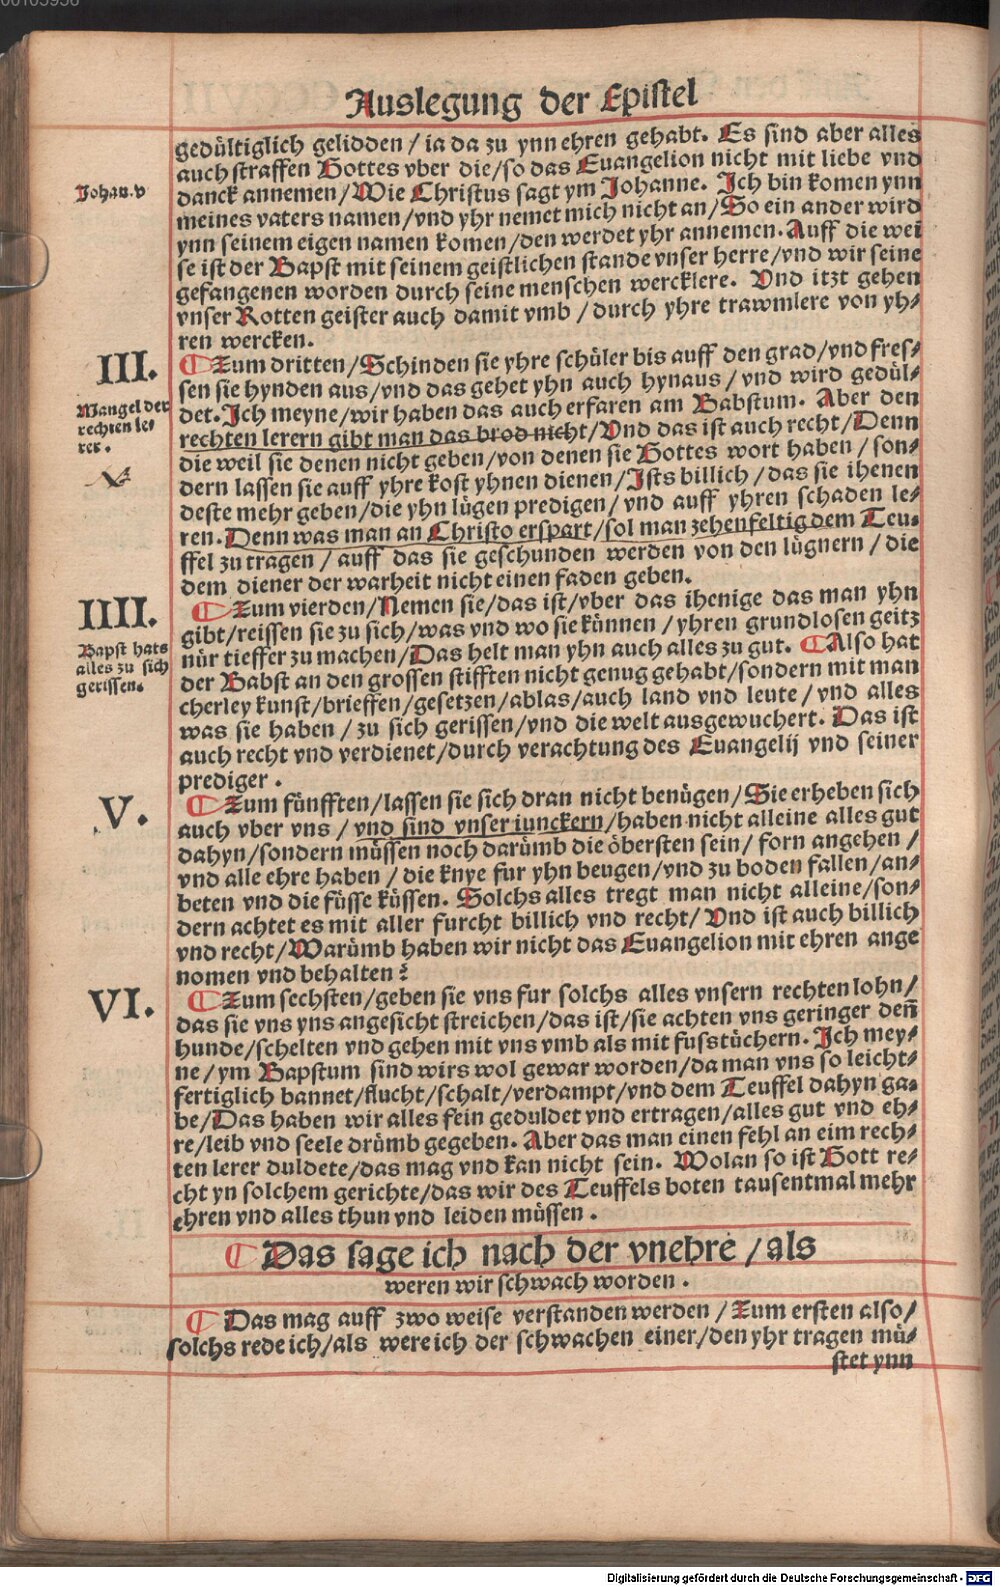 00105956
Auslegung der Epistel
gedültiglich gelidden / ia da zu ynn ehren gehabt. Es sind aber alles
auch straffen Gottes vber die / so das Euangelion nicht mit liebe vnd
Johan. v
danck annemen / Wie Christus sagt ym Johanne. Ich bin komen ynn
meines vaters namen / vnd yhr nemet mich nicht an / So ein ander wird
ynn seinem eigen namen komen / den werdet yhr annemen. Auff die wei
se ist der Bapst mit seinem geistlichen stande vnser herre / vnd wir seine
gefangenen worden durch seine menschen wercklere. Vnd itzt gehen
vnser Rotten geister auch damit vmb / durch yhre trawmlere von yh⸗
ren wercken.
III.
Zum dritten / Schinden sie yhre schüler bis auff den grad / vnd fres⸗
sen sie hynden aus / vnd das gehet yhn auch hynaus / vnd wird gedül⸗
Mangel der
rechten le⸗
rer.
det. Ich meyne / wir haben das auch erfaren am Babstum. Aber den
rechten lerern gibt man das brod nicht / Vnd das ist auch recht / Denn
die weil sie denen nicht geben / von denen sie Gottes wort haben / son⸗
dern lassen sie auff yhre kost yhnen dienen / Ists billich / das sie ihenen
deste mehr geben / die yhn lügen predigen / vnd auff yhren schaden le⸗
ren. Denn was man an Christo erspart / sol man zehenfeltig dem Teu⸗
ffel zu tragen / auff das sie geschunden werden von den lügnern / die
dem diener der warheit nicht einen faden geben.
IIII.
Zum vierden / Nemen sie / das ist / vber das ihenige das man yhn
gibt / reissen sie zu sich / was vnd wo sie künnen / yhren grundlosen geitz
Bapst hats
alles zu sich
gerissen.
nür tieffer zu machen / Das helt man yhn auch alles zu gut. Also hat
der Babst an den grossen stifften nicht genug gehabt / sondern mit man
cherley kunst / brieffen / gesetzen / ablas / auch land vnd leute / vnd alles
was sie haben / zu sich gerissen / vnd die welt ausgewuchert. Das ist
auch recht vnd verdienet / durch verachtung des Euangelij vnd seiner
prediger.
V.
Zum fünfften / lassen sie sich dran nicht benügen / Sie erheben sich
auch vber vns / vnd sind vnser iunckern / haben nicht alleine alles gut
dahyn / sondern müssen noch darümb die öbersten sein / forn angehen /
vnd alle ehre haben / die knye fur yhn beugen / vnd zu boden fallen / an⸗
beten vnd die füsse küssen. Solchs alles tregt man nicht alleine / son⸗
dern achtet es mit aller furcht billich vnd recht / Vnd ist auch billich
vnd recht / Warümb haben wir nicht das Euangelion mit ehren ange
nomen vnd behalten?
VI.
Zum sechsten / geben sie vns fur solchs alles vnsern rechten lohn /
das sie vns yns angesicht streichen / das ist / sie achten vns geringer deñ
hunde / schelten vnd gehen mit vns vmb als mit fusstüchern. Ich mey⸗
ne / ym Bapstum sind wirs wol gewar worden / da man vns so leicht⸗
fertiglich bannet / flucht / schalt / verdampt / vnd dem Teuffel dahyn ga⸗
be / Das haben wir alles fein geduldet vnd ertragen / alles gut vnd eh⸗
re / leib vnd seele drümb gegeben. Aber das man einen fehl an eim rech⸗
ten lerer duldete / das mag vnd kan nicht sein. Wolan so ist Gott re⸗
cht yn solchem gerichte / das wir des Teuffels boten tausentmal mehr
ehren vnd alles thun vnd leiden müssen.
Das sage ich nach der vnehre / als
weren wir schwach worden.
Das mag auff zwo weise verstanden werden / Zum ersten also /
solchs rede ich / als were ich der schwachen einer / den yhr tragen mü⸗
stet ynn
Digitalisierung gefördert durch die Deutsche Forschungsgemeinschaft - DFG